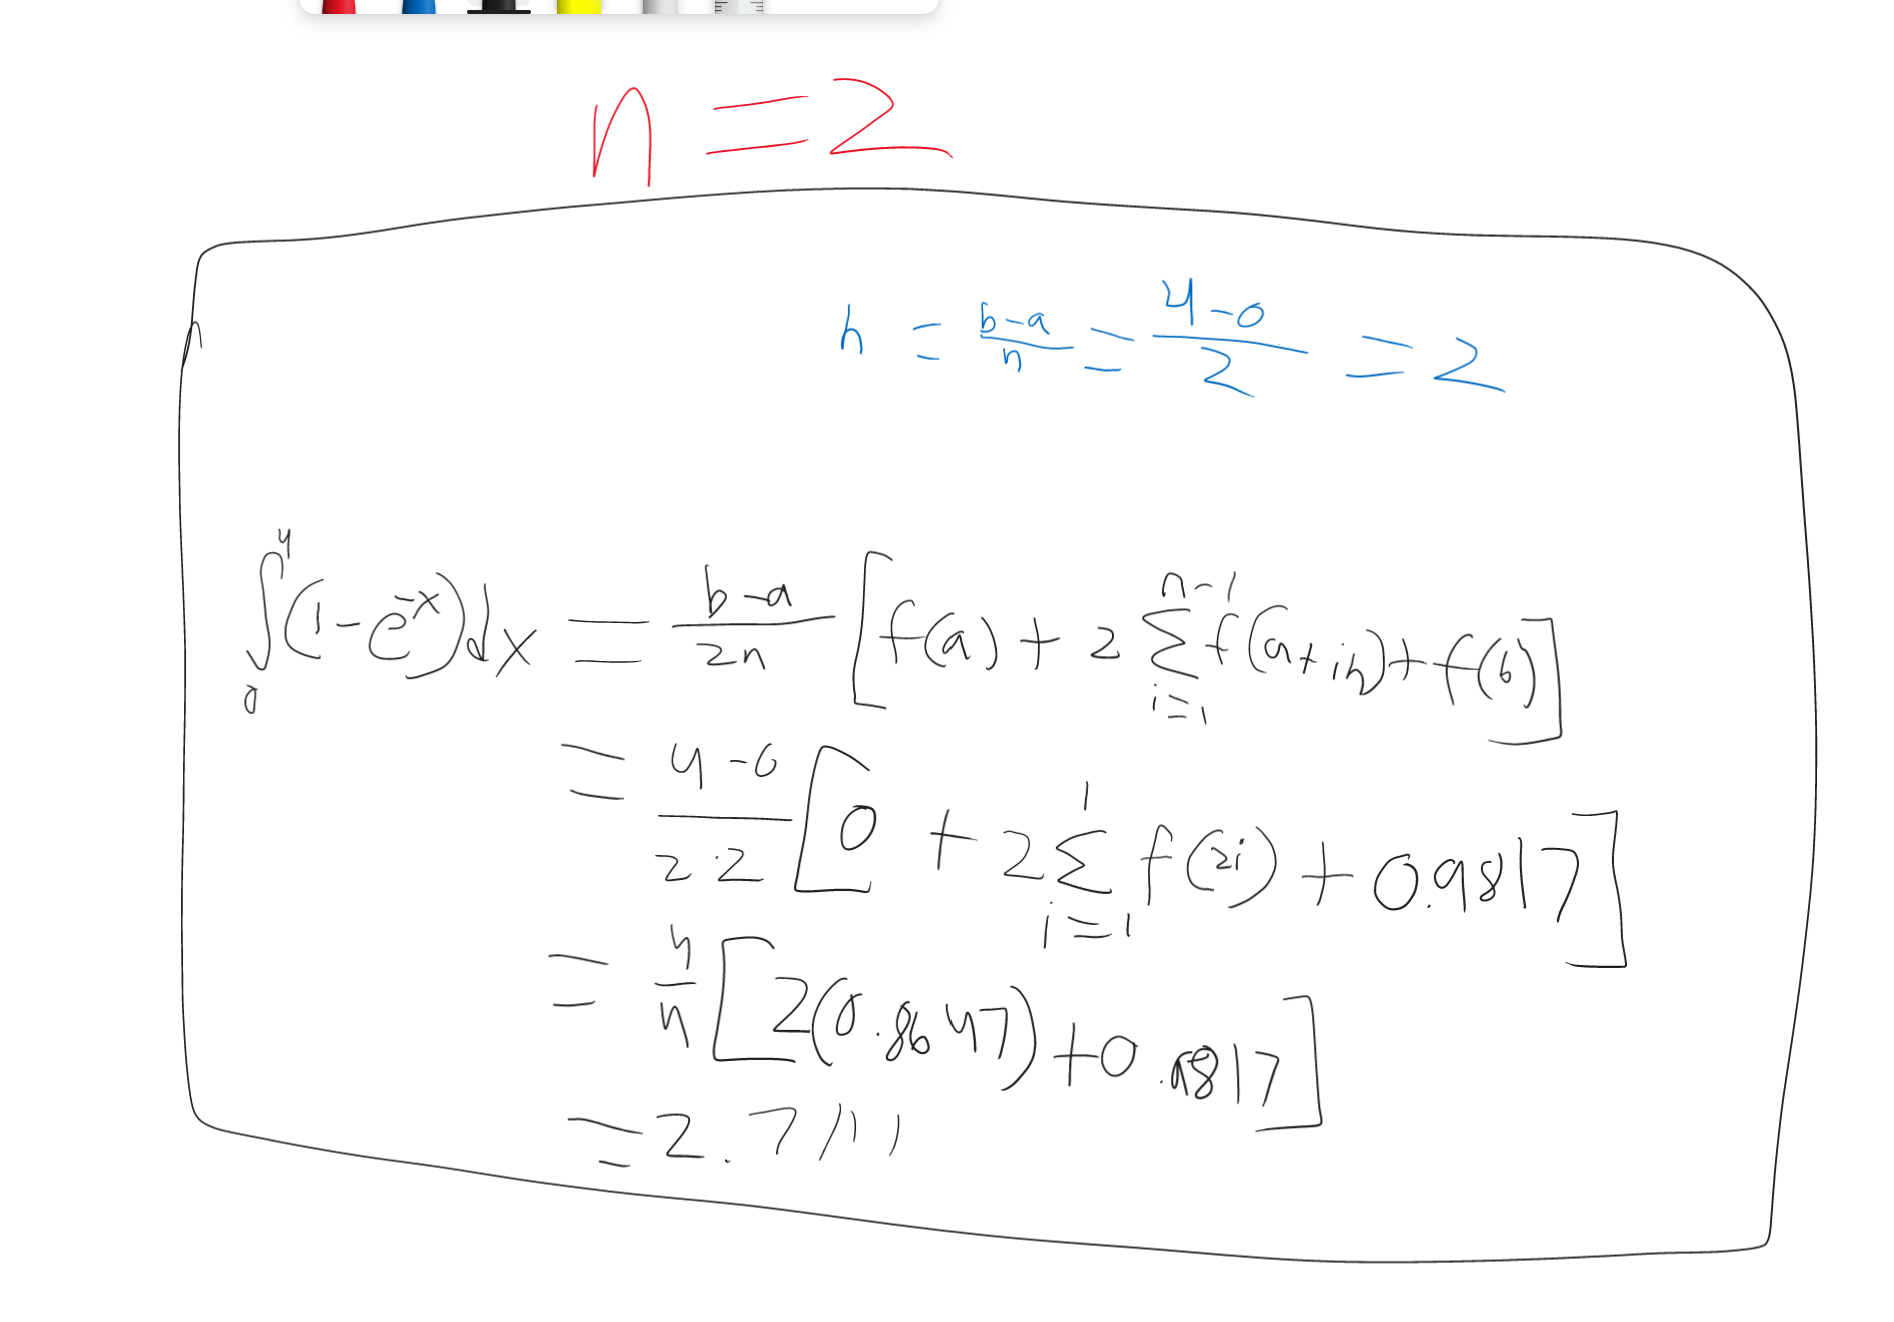 n = 2
h = b-a/n = 4-0/2 = 2
∫₀⁴(1-e^-x)dx = b-a/2n [f(a) + 2 Σ_{i=1}^{n-1} f(a+ih) + f(b)]
= 4-0/2·2 [0 + 2 Σ_{i=1}^{1} f(2i) + 0.9817]
= 4/4 [2(0.8647) + 0.9817]
= 2.7111